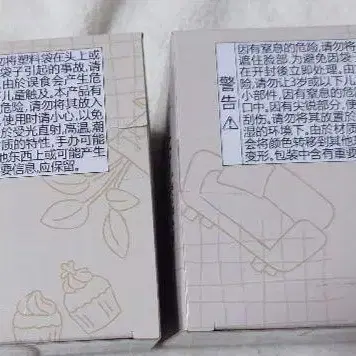 勿将塑料袋在头上或
袋子引起的事故,请
由於误食会产生危
儿童触及.本产品有
危险,请勿将其放入
使用时请小心,以免
於受光直射,高温,潮
质的特性,手办可能
他东西上或可能产生
要信息,应保留.
警告
因有窒息的危险,请勿将
遮住脸部.为避免因袋
在开封後立即处理.由
险,请勿让3岁以下
小部件,因有窒息危险
口中.因有尖锐部
刮伤.请勿将其放置
湿的环境下.由於材
会将颜色转移到其他
变形.包装中含有重要